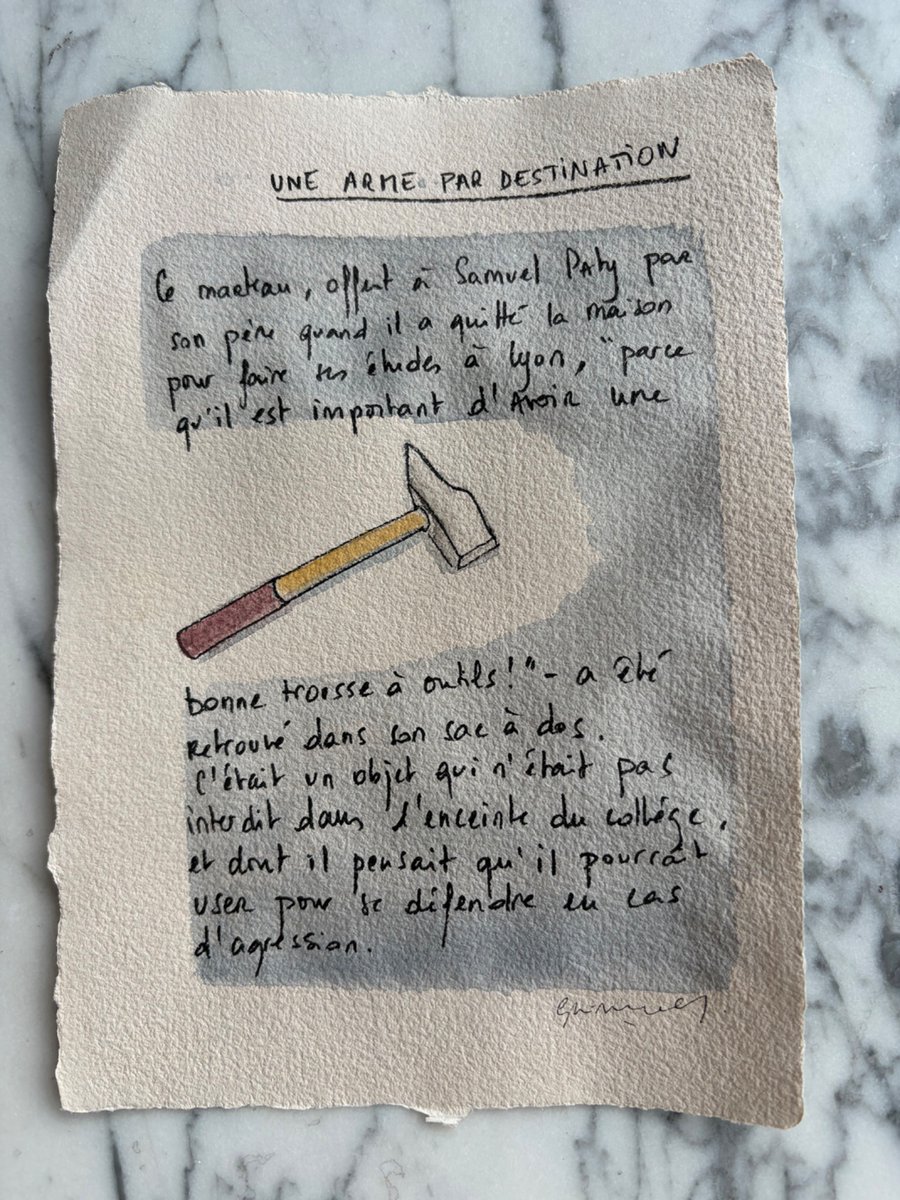 UNE ARME PAR DESTINATION
Ce marteau, offert à Samuel Paty par
son père quand il a quitté la maison
pour faire ses études à Lyon, "parce
qu'il est important d'avoir une
bonne trousse à outils!" - a été
retrouvé dans son sac à dos.
C'était un objet qui n'était pas
interdit dans l'enceinte du collège,
et dont il pensait qu'il pourrait
user pour se défendre en cas
d'agression.